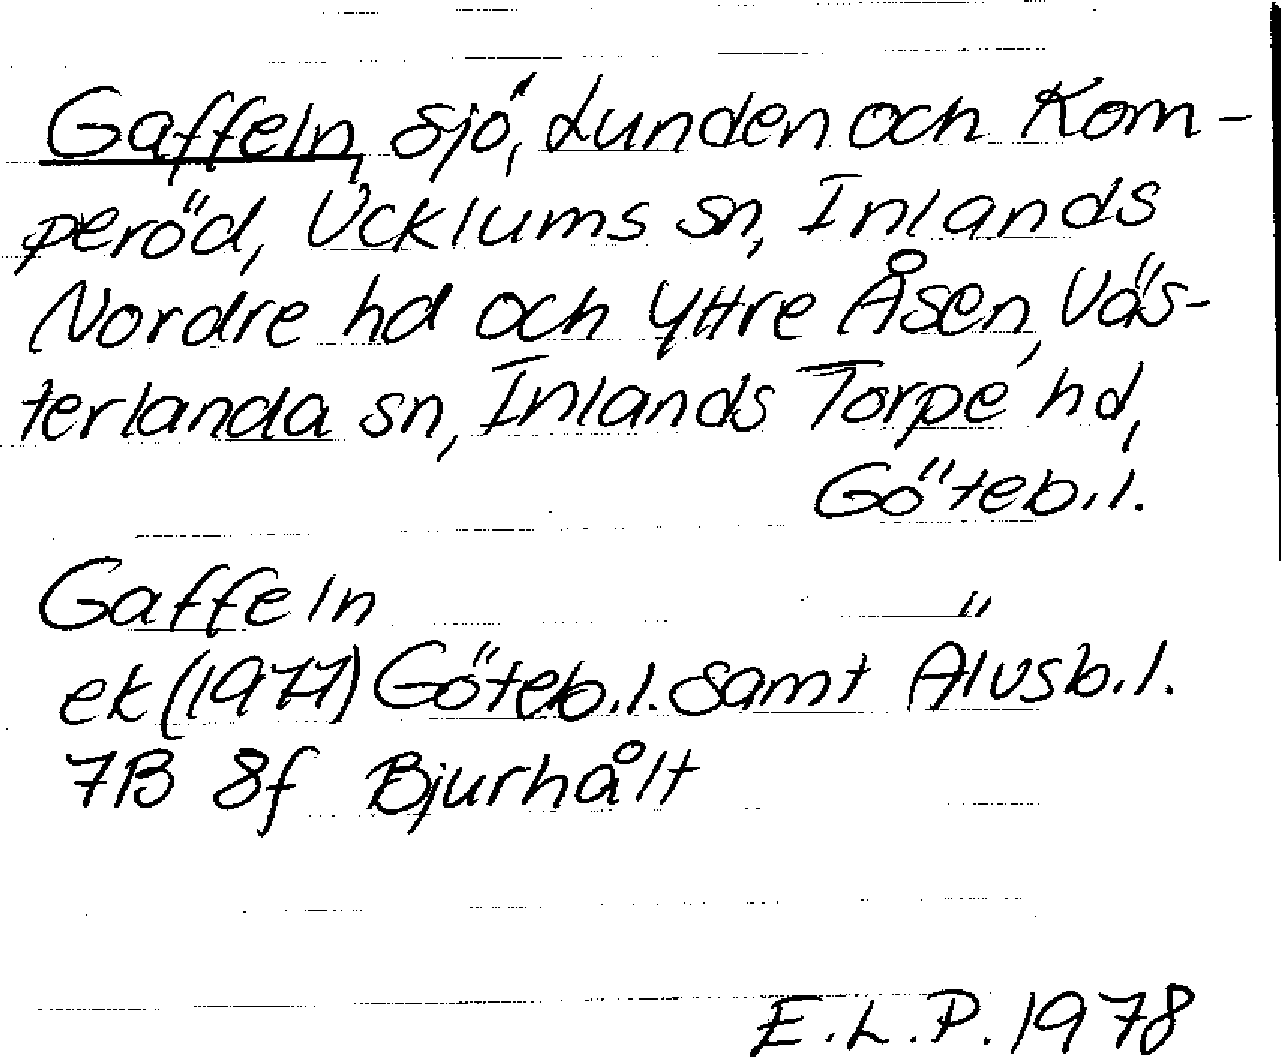 Gaffeln, sjö, Lunden och Kom-
peröd, Ucklums sn, Inlands
Nordre hd och Yttre Åsen, Väs-
terlanda sn, Inlands Torpe hd,
Göteb.l.
Gaffeln "
ek (1977) Göteb.l. samt Älvsb.l.
7B 8f Bjurhålt
E.L.P. 1978